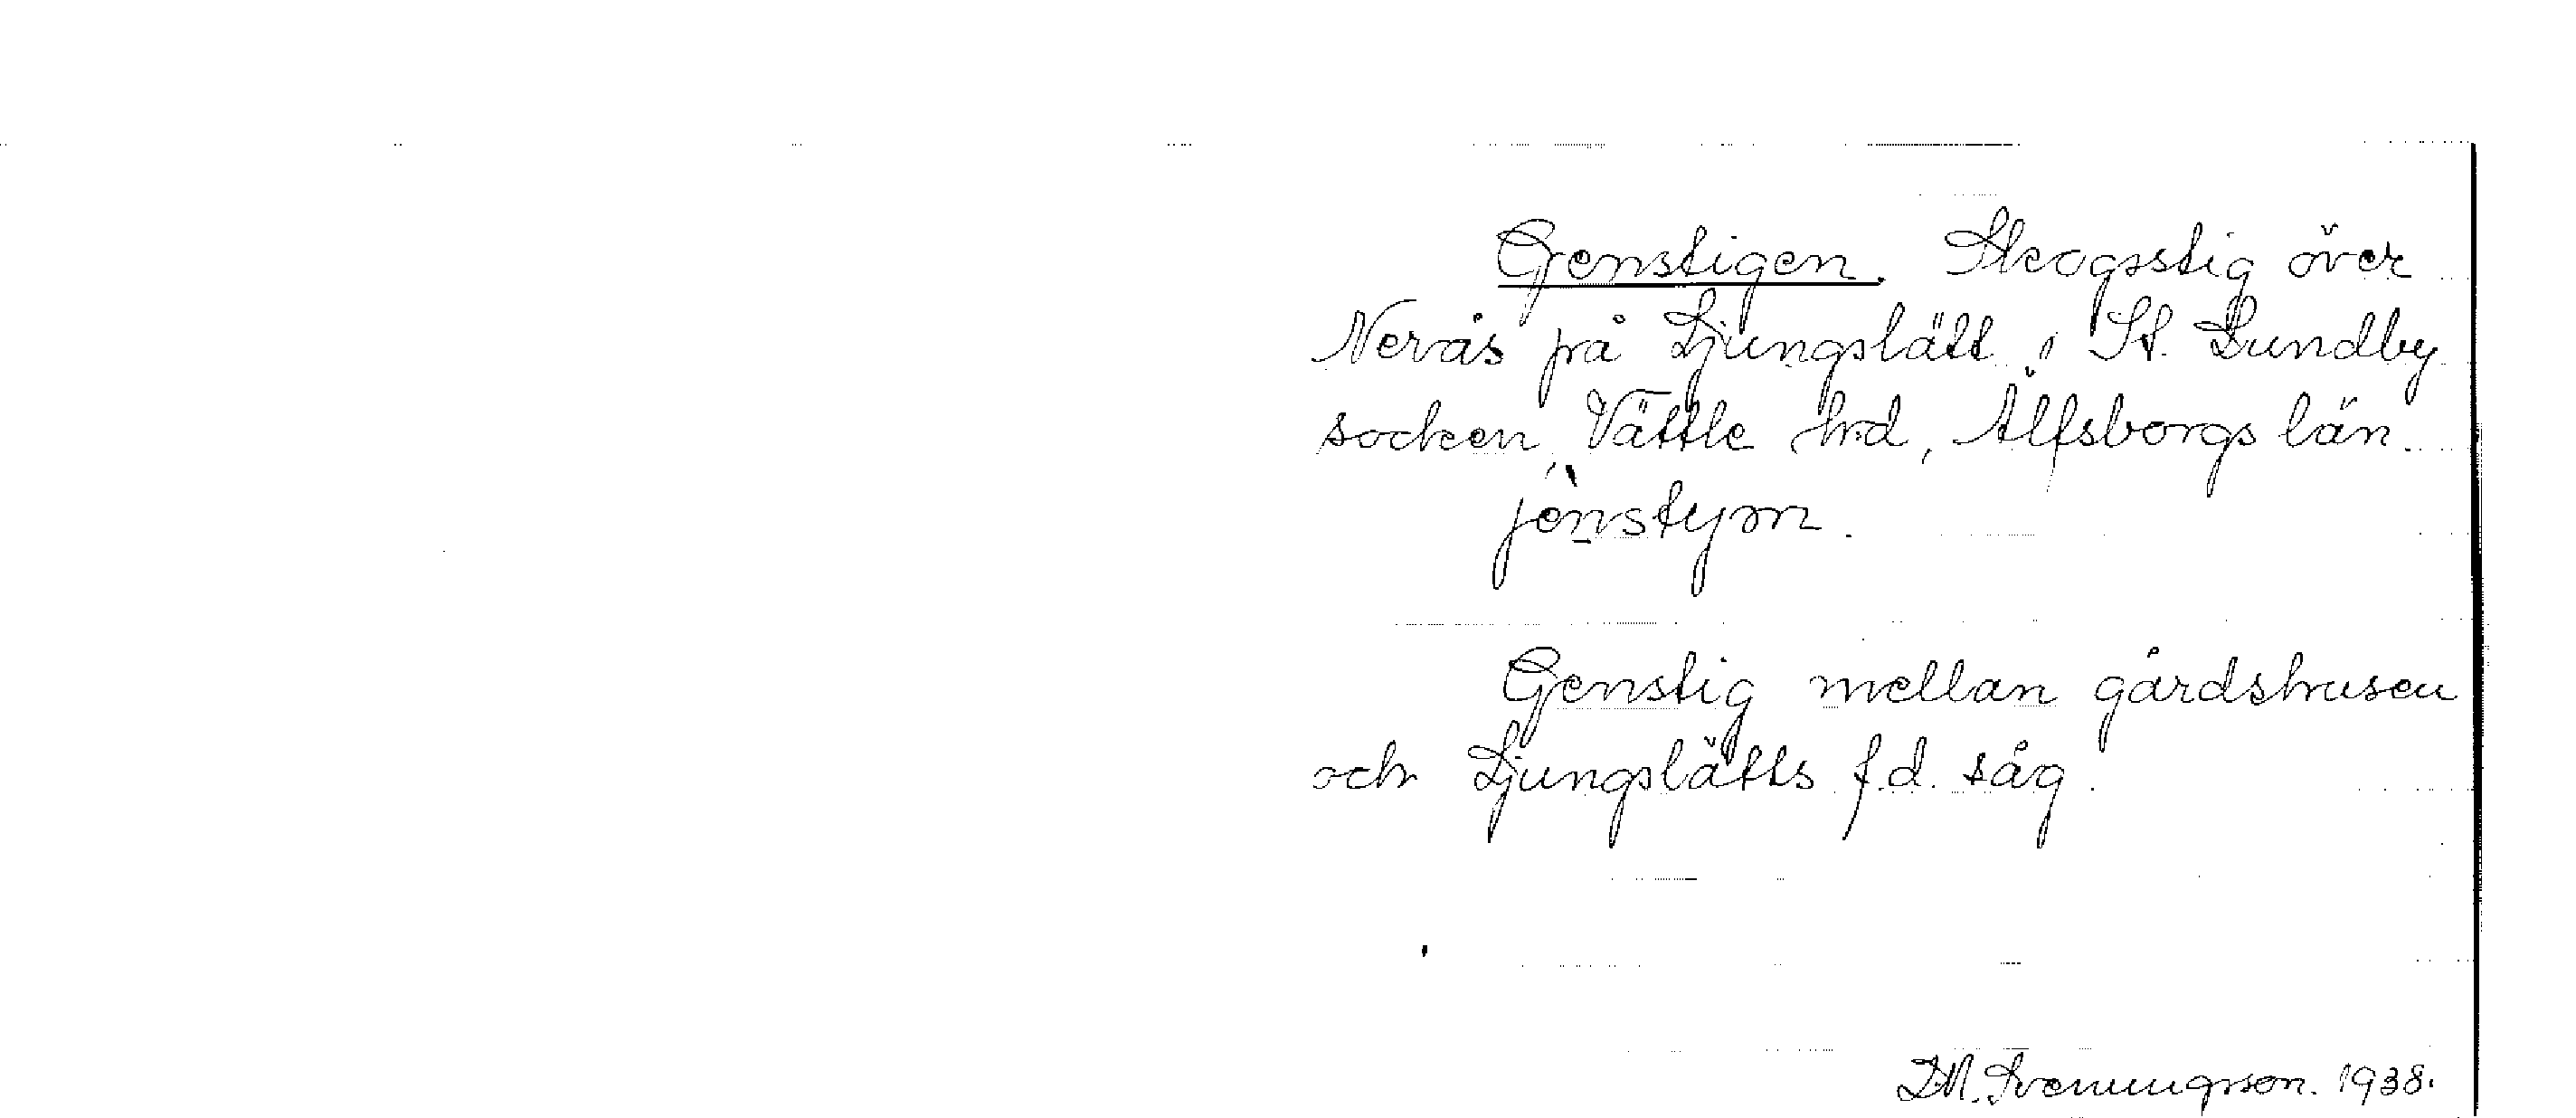 Genstigen. Skogsstig över
Nerås på Ljungslätt i St. Lundby
socken, Vättle hd, Älfsborgs län.
jènstyɷn.
Genstig mellan gårdshusen
och Ljungslätts f.d. såg.
I.M. Svenungsson. 1938.